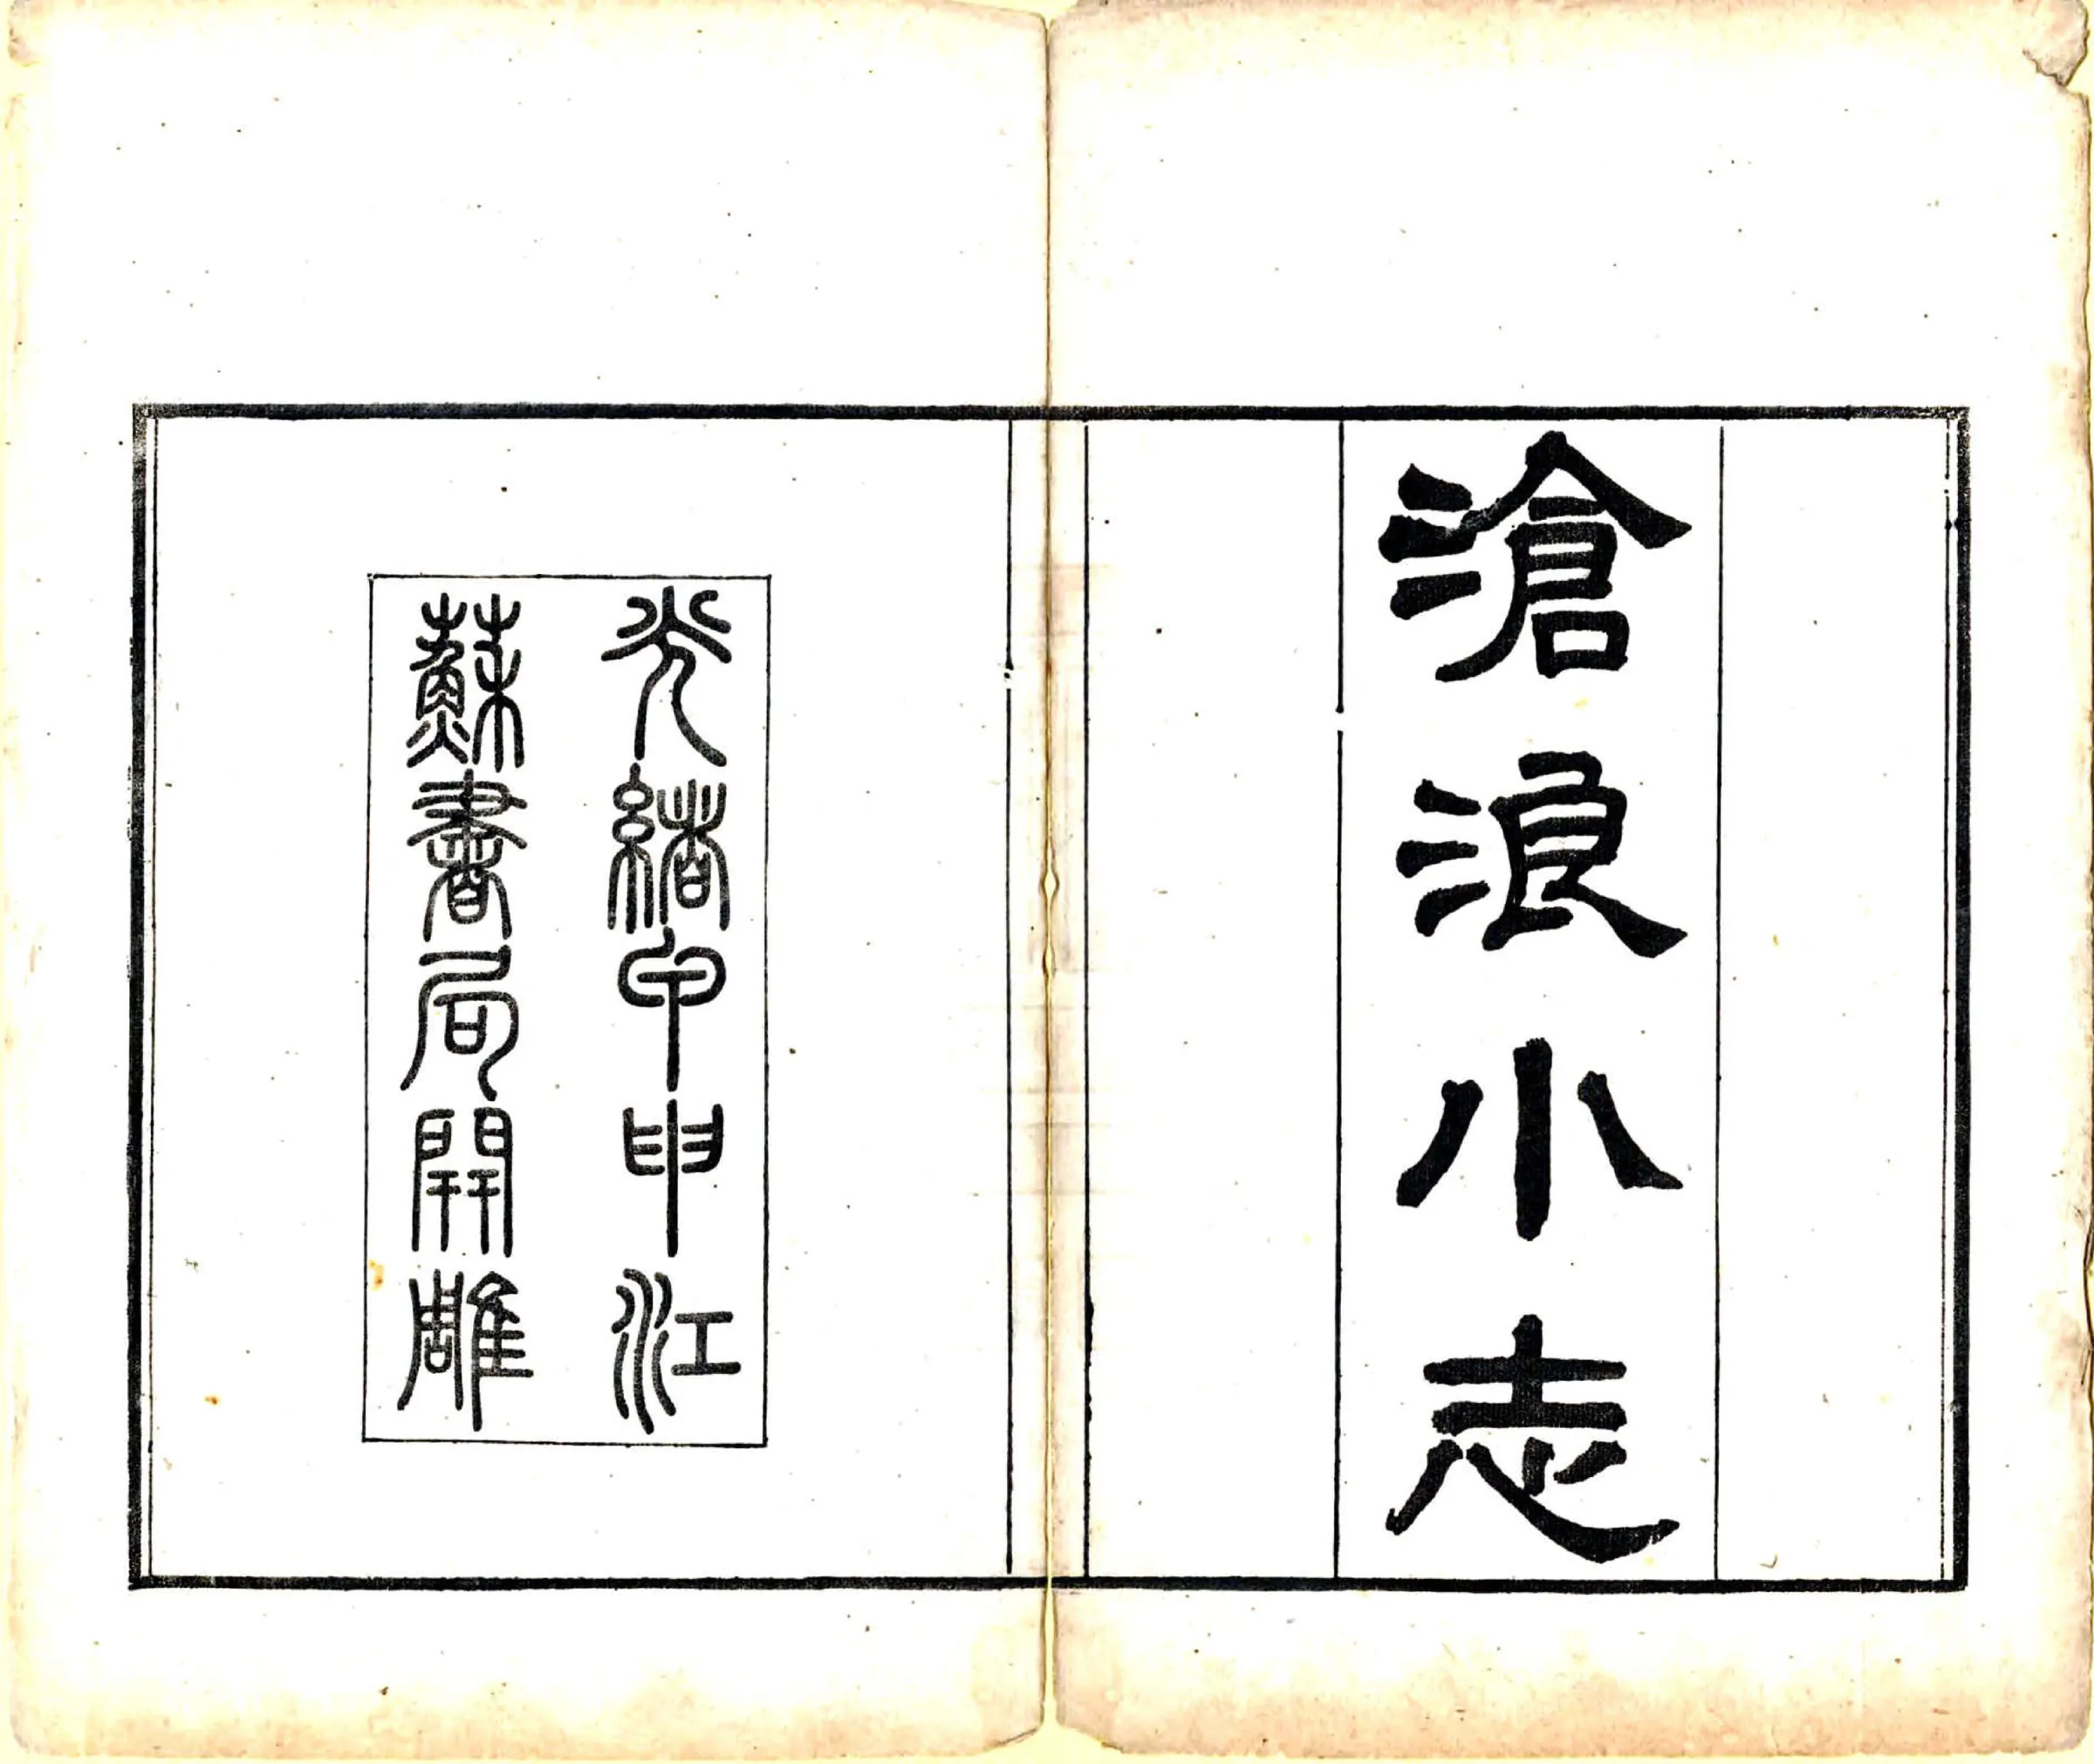 滄浪小志
光緒甲申江
蘇書局開雕